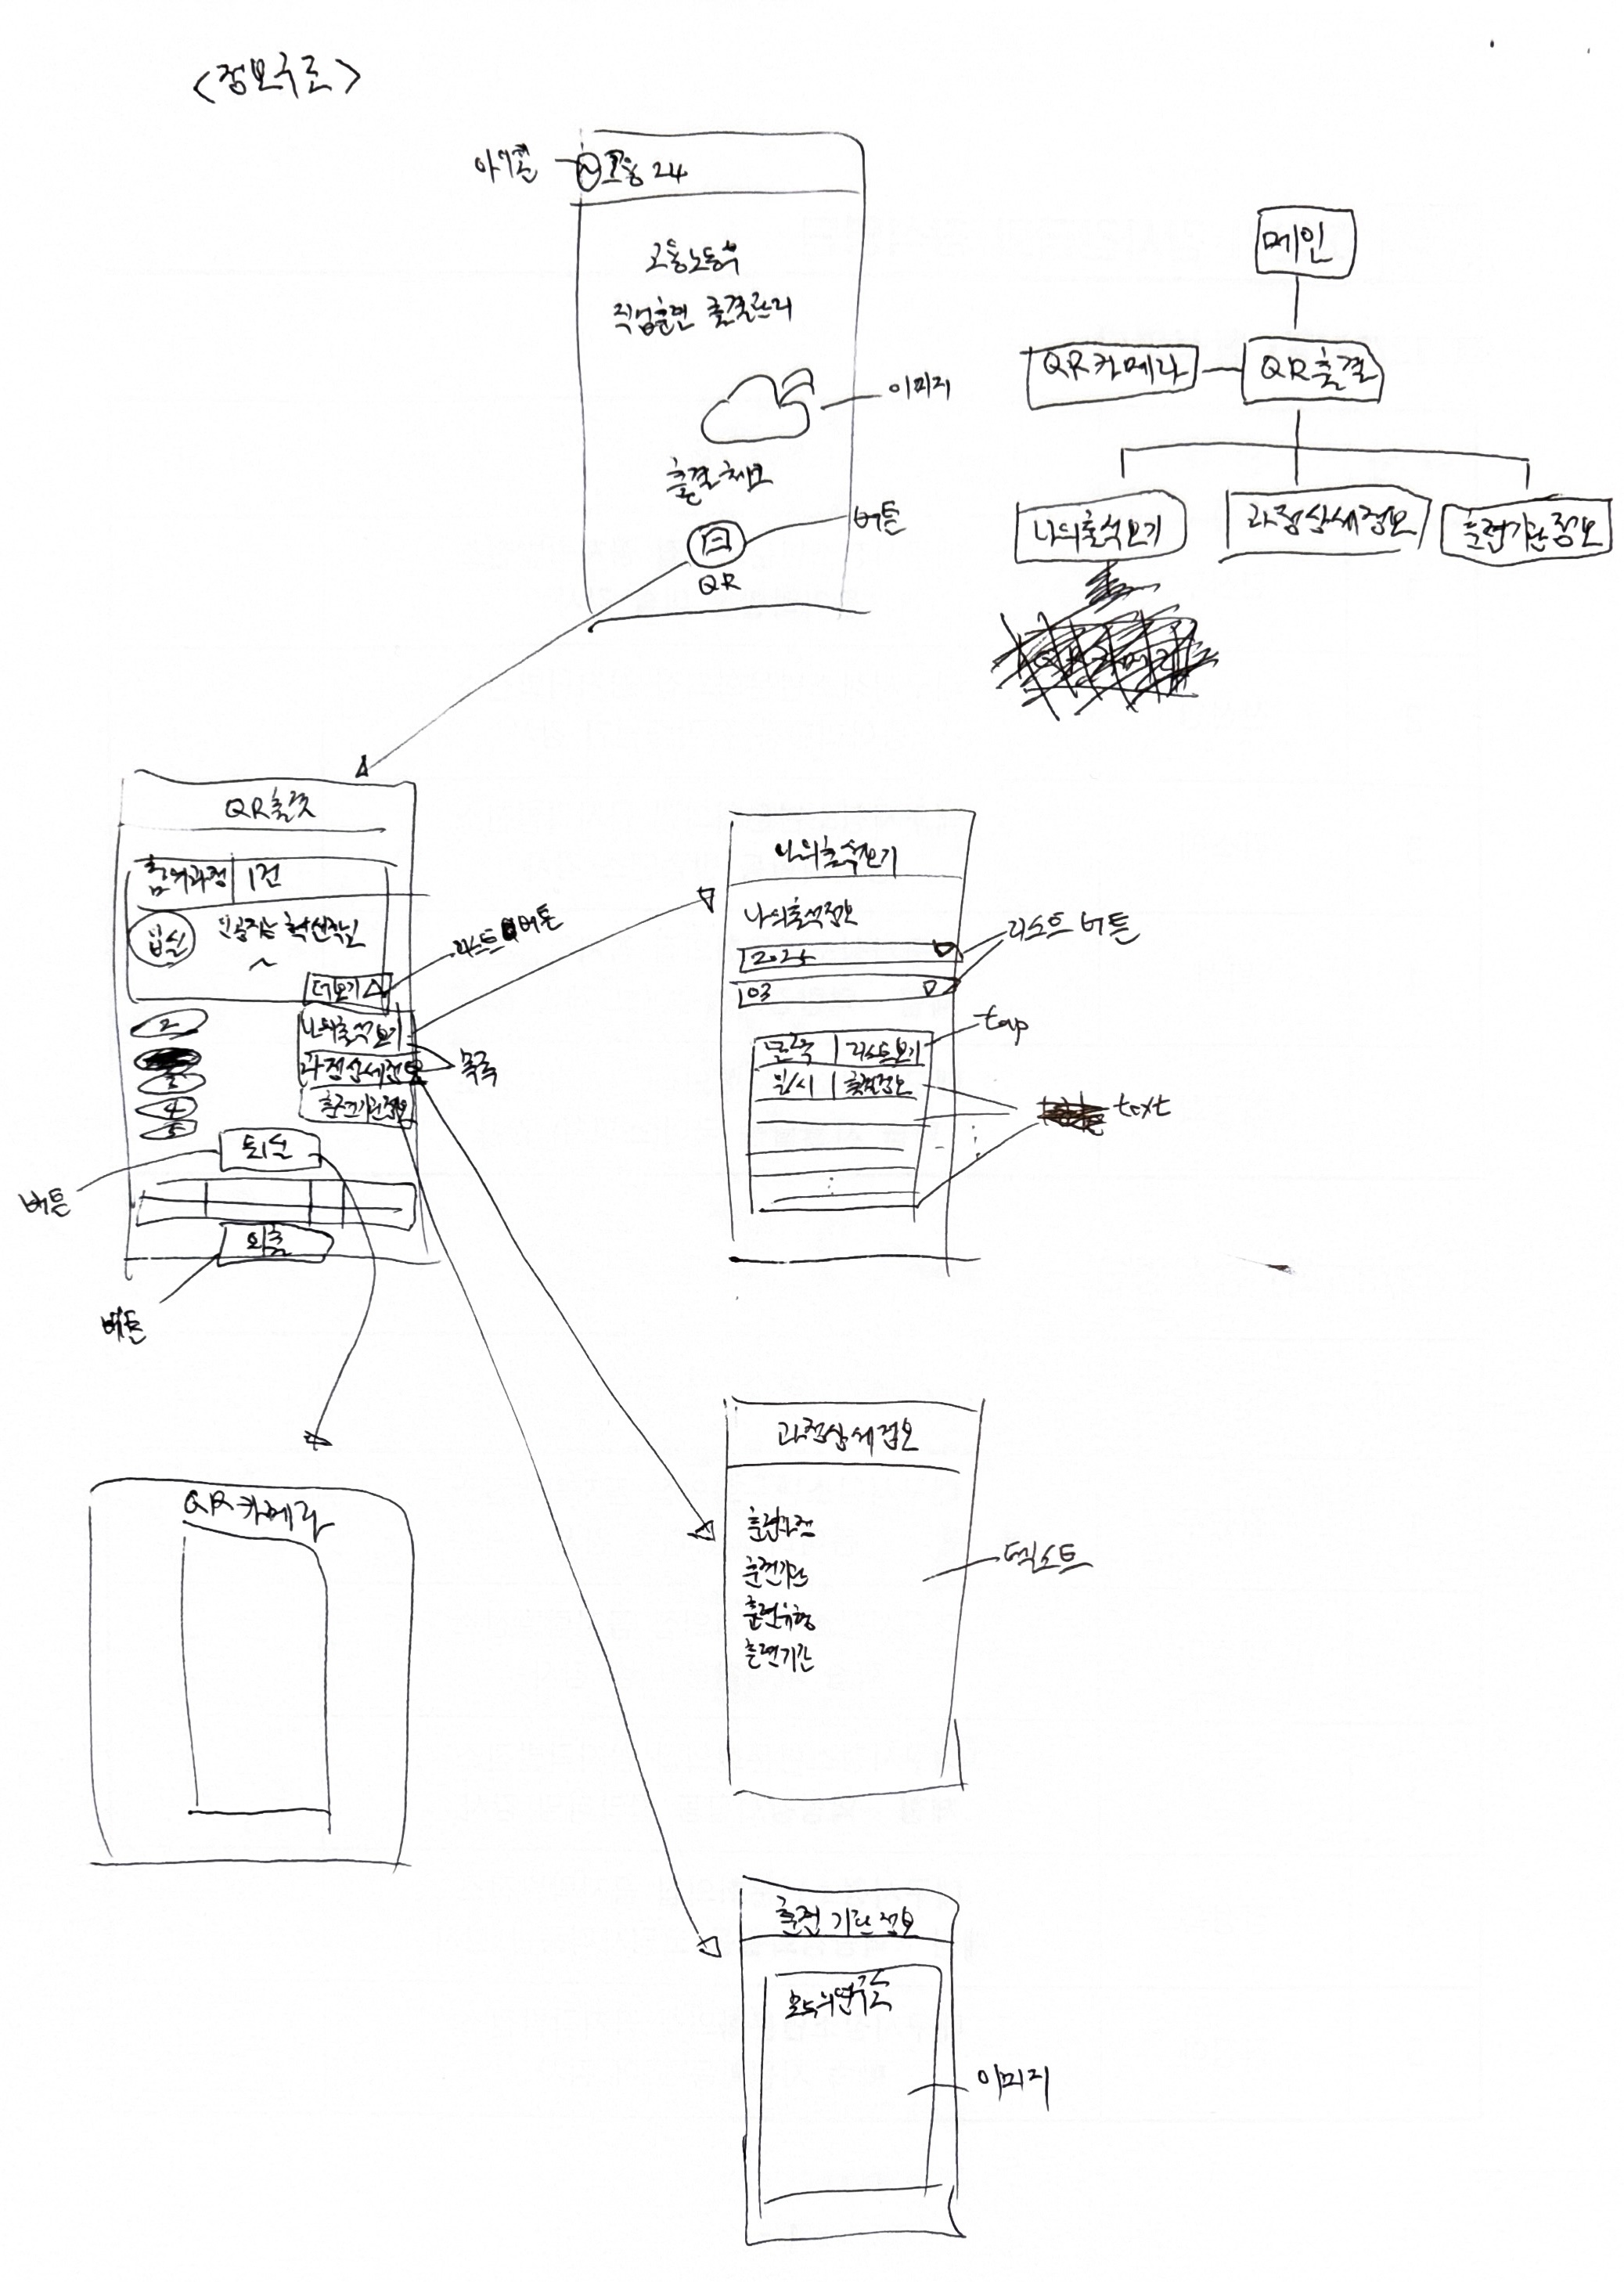 <정보구조>
아이콘
고용 24
고용노동부
직업훈련 출결관리
이미지
출결체크
버튼
QR
메인
QR카메라
QR출결
나의출석보기
과정상세정보
훈련기관정보
QR출결
참여과정 1건
입실
인공지능 혁신학님
~
더보기
리스트 버튼
나의출석보기
과정상세정보
훈련기관정보
목록
2
4
5
퇴실
버튼
외출
버튼
QR카메라
나의출석보기
나의출석정보
2025
03
리스트 버튼
리스트보기
tap
일시
출결정보
text
과정상세정보
훈련과정
훈련기관
훈련유형
훈련기간
텍스트
훈련기관정보
모두의연구소
이미지